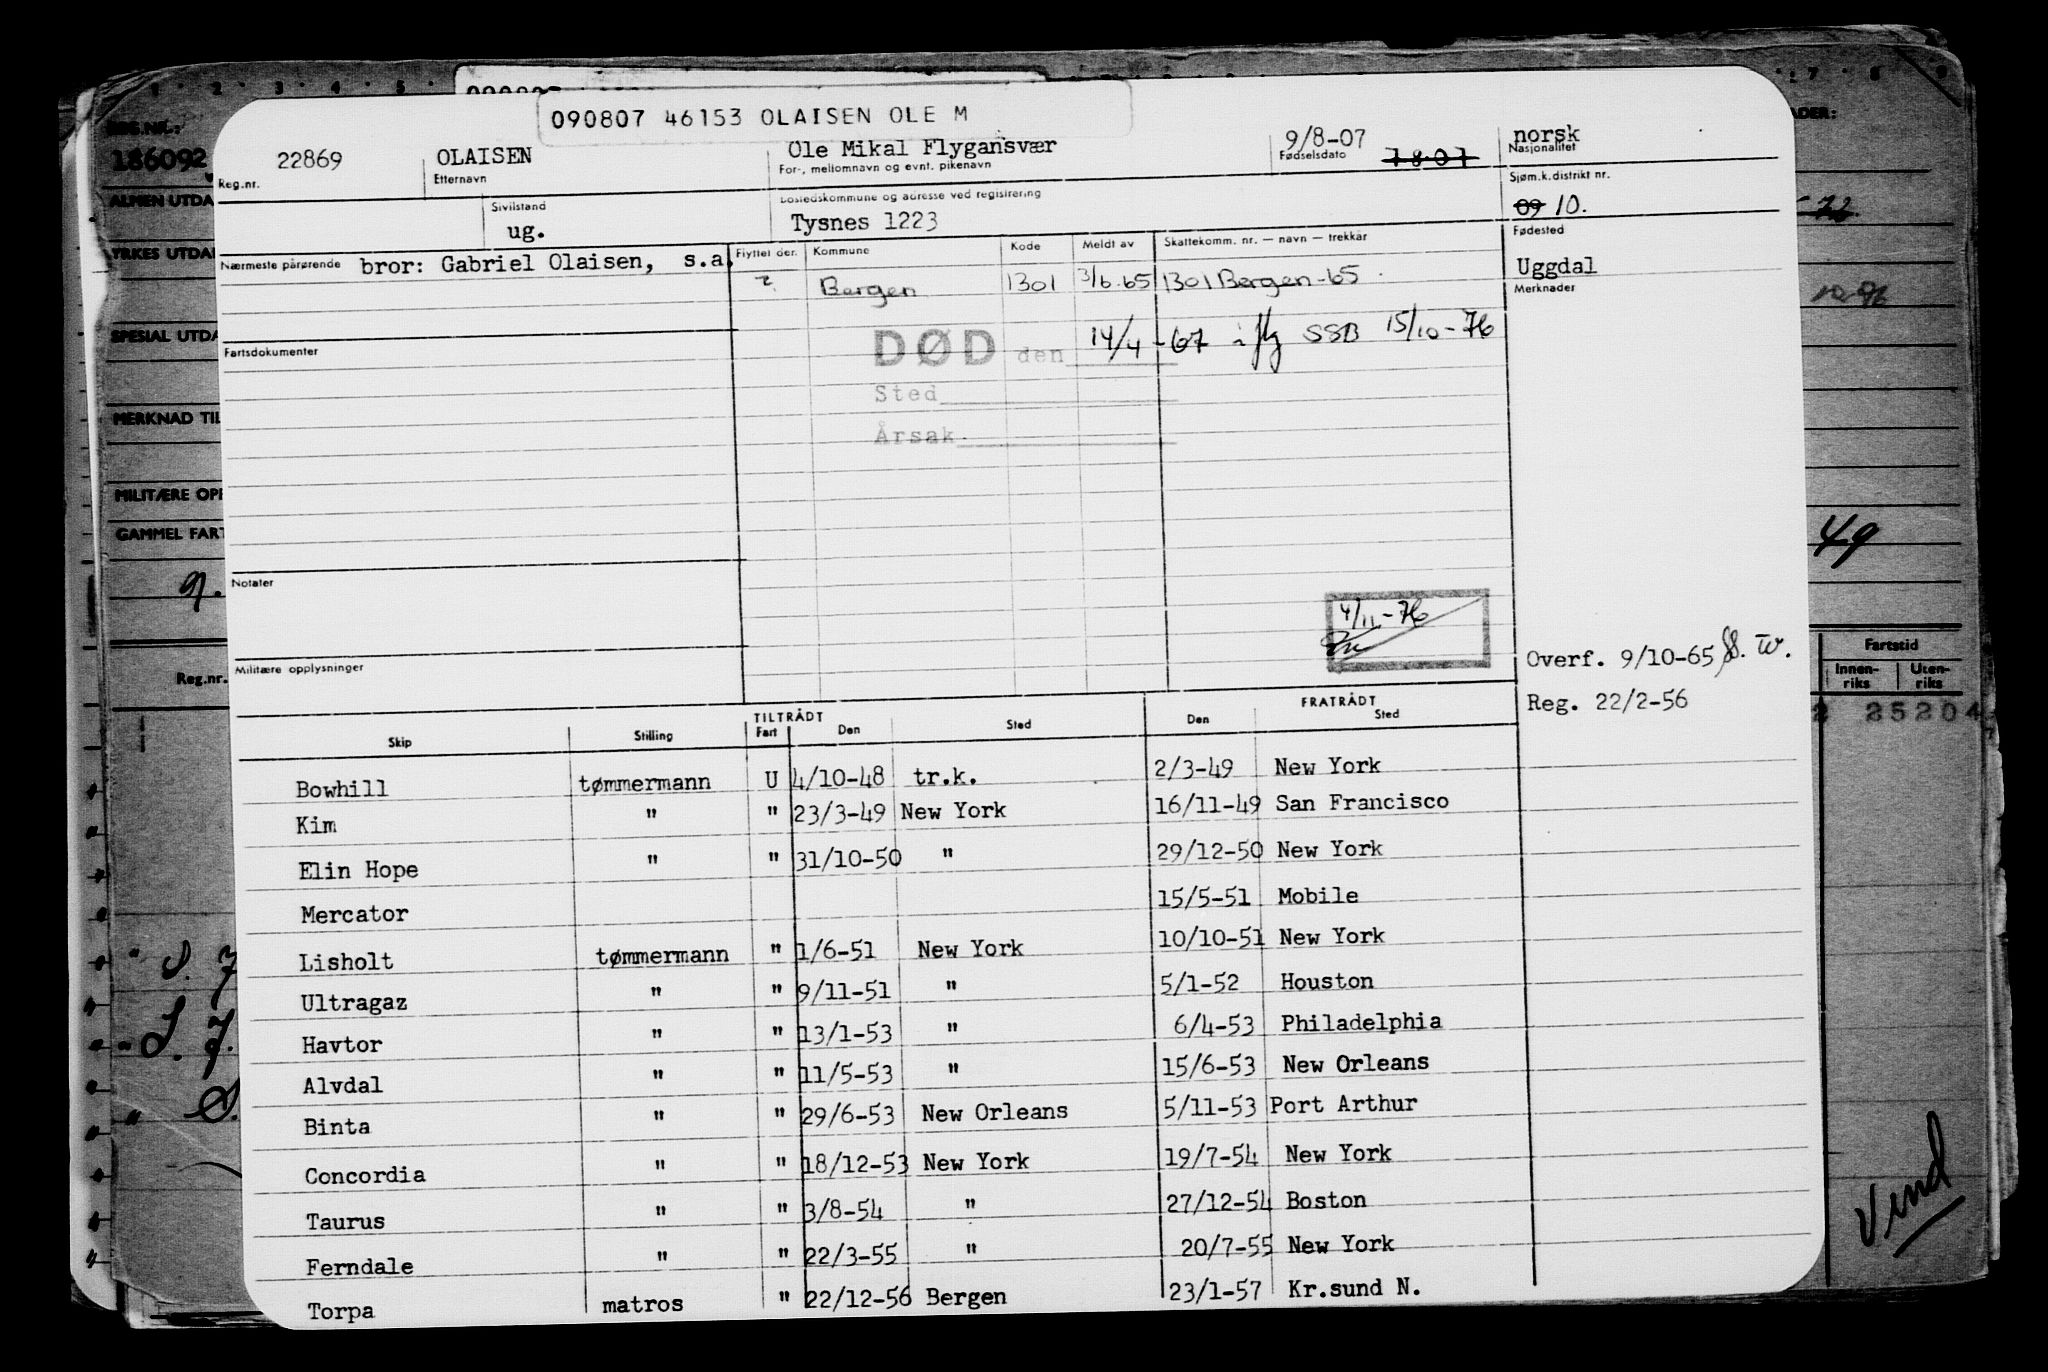 090807 46153 OLAISEN OLE M
REG.NR.:
186092
ALMEN UTDA
YRKES UTDA
SPESIAL UTDA
MERKNAD TIL
MILITÆRE OPP
GAMMEL FART
Reg.nr.
22869 OLAISEN Ole Mikal Flygansvær 9/8-07 7-8-07 norsk
Reg.nr. Etternavn For-, mellomnavn og evnt. pikenavn Fødselsdato Nasjonalitet
Sivilstand Bostedskommune og adresse ved registrering Sjøm.k.distrikt nr.
ug. Tysnes 1223 09 10.
Nærmeste pårørende bror: Gabriel Olaisen, s.a. Flyttet der. Kommune Kode Meldt av Skattekomm. nr. — navn — trekkår Fødested
? Bergen 1301 3/6.65 1301 Bergen-65 Uggdal
Merknader
Fartsdokumenter
DØD den 14/4-67 i flg SSB 15/10-76
Sted
Årsak
Notater
4/11-76
Militære opplysninger
Overf. 9/10-65
Reg. 22/2-56
TILTRÅDT FRATRÅDT
Skip Stilling Fart Den Sted Den Sted
Bowhill tømmermann U 4/10-48 tr.k. 2/3-49 New York
Kim " " 23/3-49 New York 16/11-49 San Francisco
Elin Hope " " 31/10-50 " 29/12-50 New York
Mercator 15/5-51 Mobile
Lisholt tømmermann " 1/6-51 New York 10/10-51 New York
Ultragaz " " 9/11-51 " 5/1-52 Houston
Havtor " " 13/1-53 " 6/4-53 Philadelphia
Alvdal " " 11/5-53 " 15/6-53 New Orleans
Binta " " 29/6-53 New Orleans 5/11-53 Port Arthur
Concordia " " 18/12-53 New York 19/7-54 New York
Taurus " " 3/8-54 " 27/12-54 Boston
Ferndale " " 22/3-55 " 20/7-55 New York
Torpa matros " 22/12-56 Bergen 23/1-57 Kr.sund N.
49
Fartstid
Innen-riks Uten-riks
2 25204
Vend